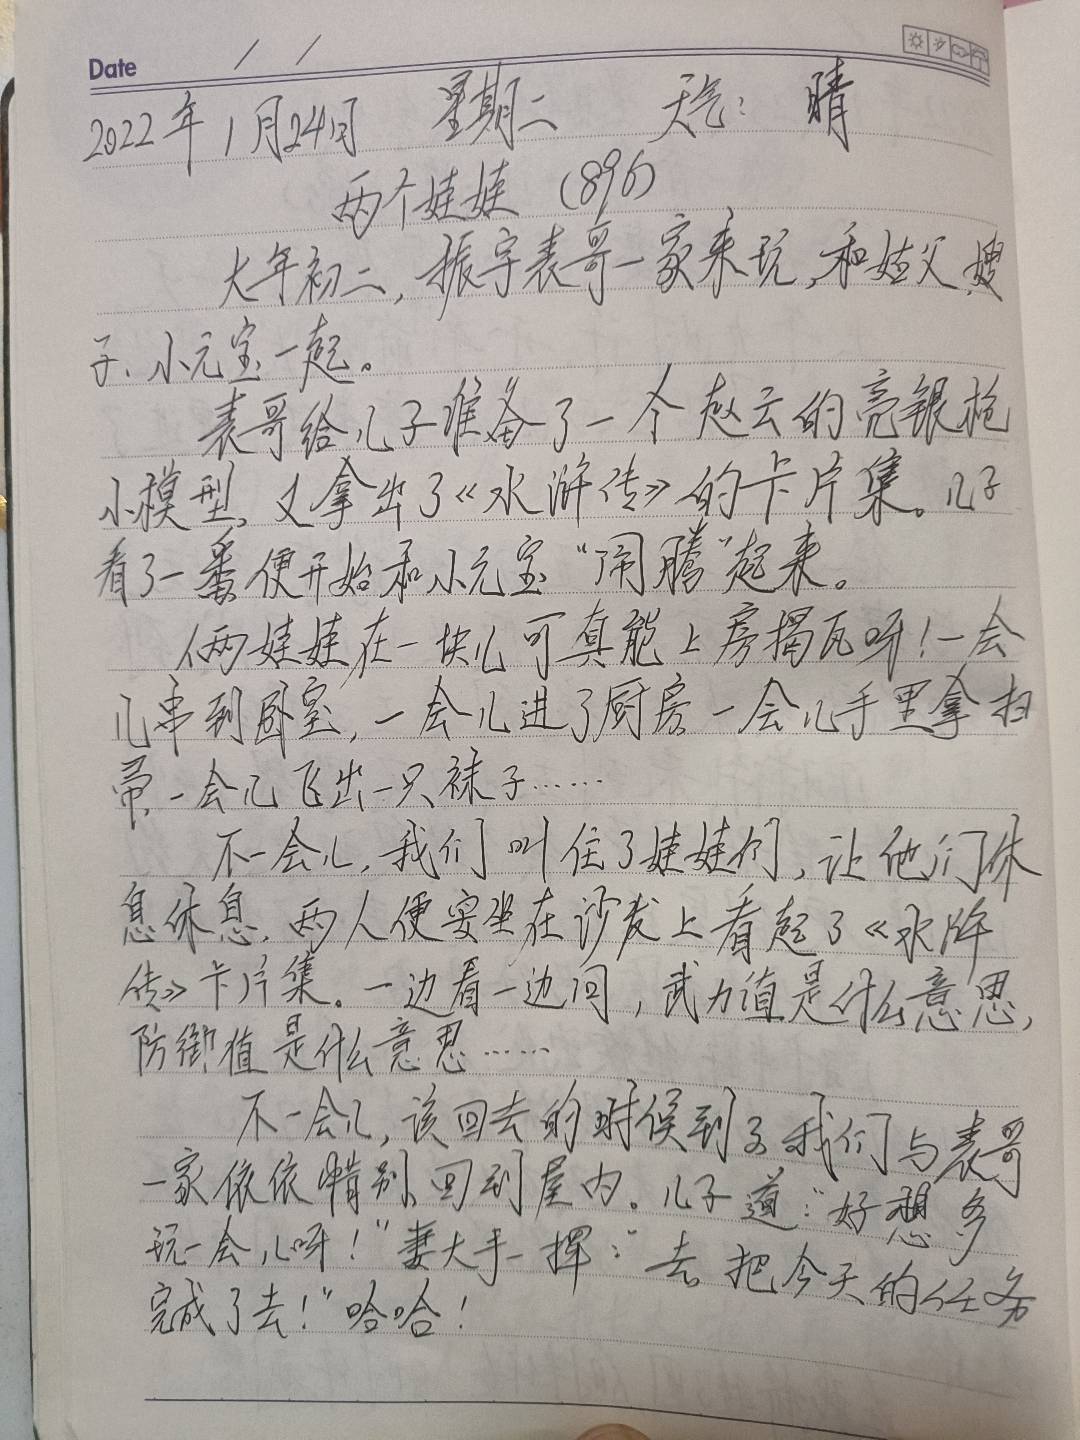 Date / /
2022年1月24日 星期二 天气：晴
两个娃娃（896）
大年初二，振宇表哥一家来玩，和姑父、嫂
子、小元宝一起。
表哥给儿子准备了一个赵云的亮银枪
小模型，又拿出了《水浒传》的卡片集。儿子
看了一番，便开始和小元宝“闹腾”起来。
俩娃娃在一块儿可真能上房揭瓦呀！一会
儿串到卧室，一会儿进了厨房，一会儿手里拿扫
帚，一会儿飞出一只袜子……
不一会儿，我们叫住了娃娃们，让他们休
息休息，两人便安坐在沙发上看起了《水浒
传》卡片集。一边看一边问，武力值是什么意思，
防御值是什么意思……
不一会儿，该回去的时候到了，我们与表哥
一家依依惜别，回到屋内。儿子道：“好想多
玩一会儿呀！”妻大手一挥：“去，把今天的任务
完成了去！”哈哈！